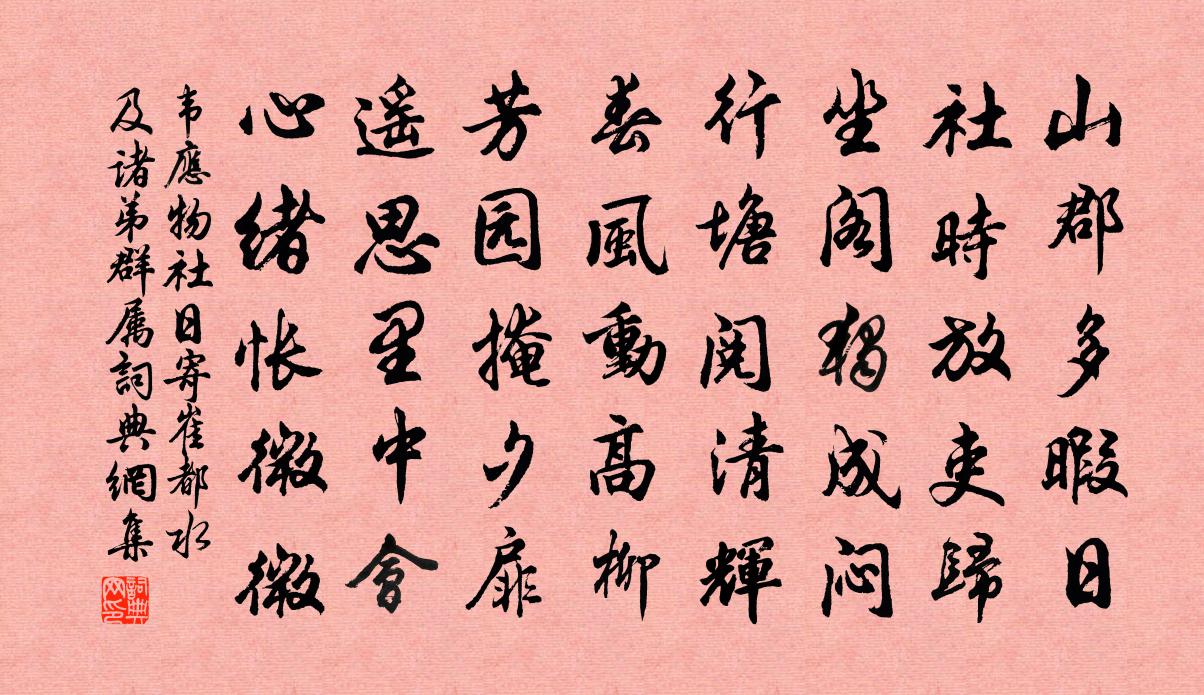 山郡多暇日
社時放吏歸
坐阁獨成闷
行塘阅清輝
春風動高柳
芳园掩夕扉
遥思里中會
心緒怅微微
韦應物社日寄崔都水
及诸弟群属詞典網集
詞典
网印